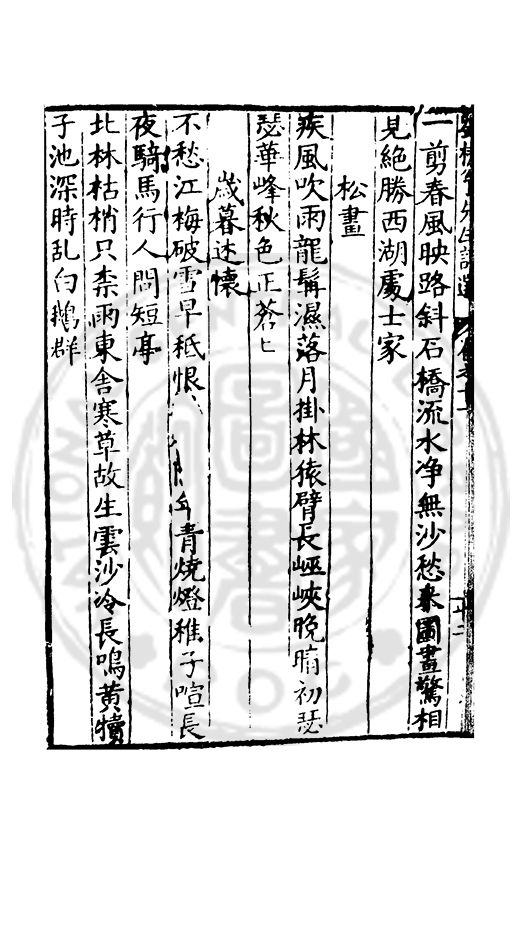 一剪春風映路斜石橋流水净無沙愁來圖畫驚相
見絶勝西湖處士家
松畫
疾風吹雨龍髯濕落月掛林猿臂長峡晚晴初瑟
瑟華峰秋色正蒼匕
歲暮述懷
不愁江梅破雪早秪恨青燒燈稚子喧長
夜騎馬行人問短亭
北林枯梢只柰雨東舎寒草故生雲沙冷長鳴黄犢
子池深時乱白鵝群